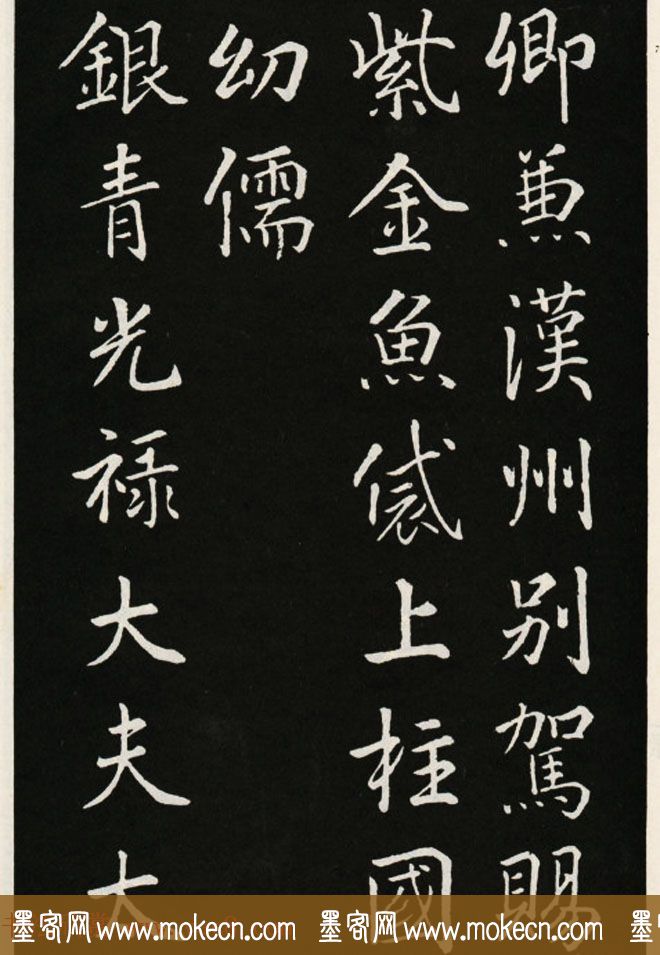 卿兼漢州別駕賜
紫金魚袋上柱國
幼儒
銀青光祿大夫大
墨客网 www.mokecn.com 墨客网 www.mokecn.com 墨